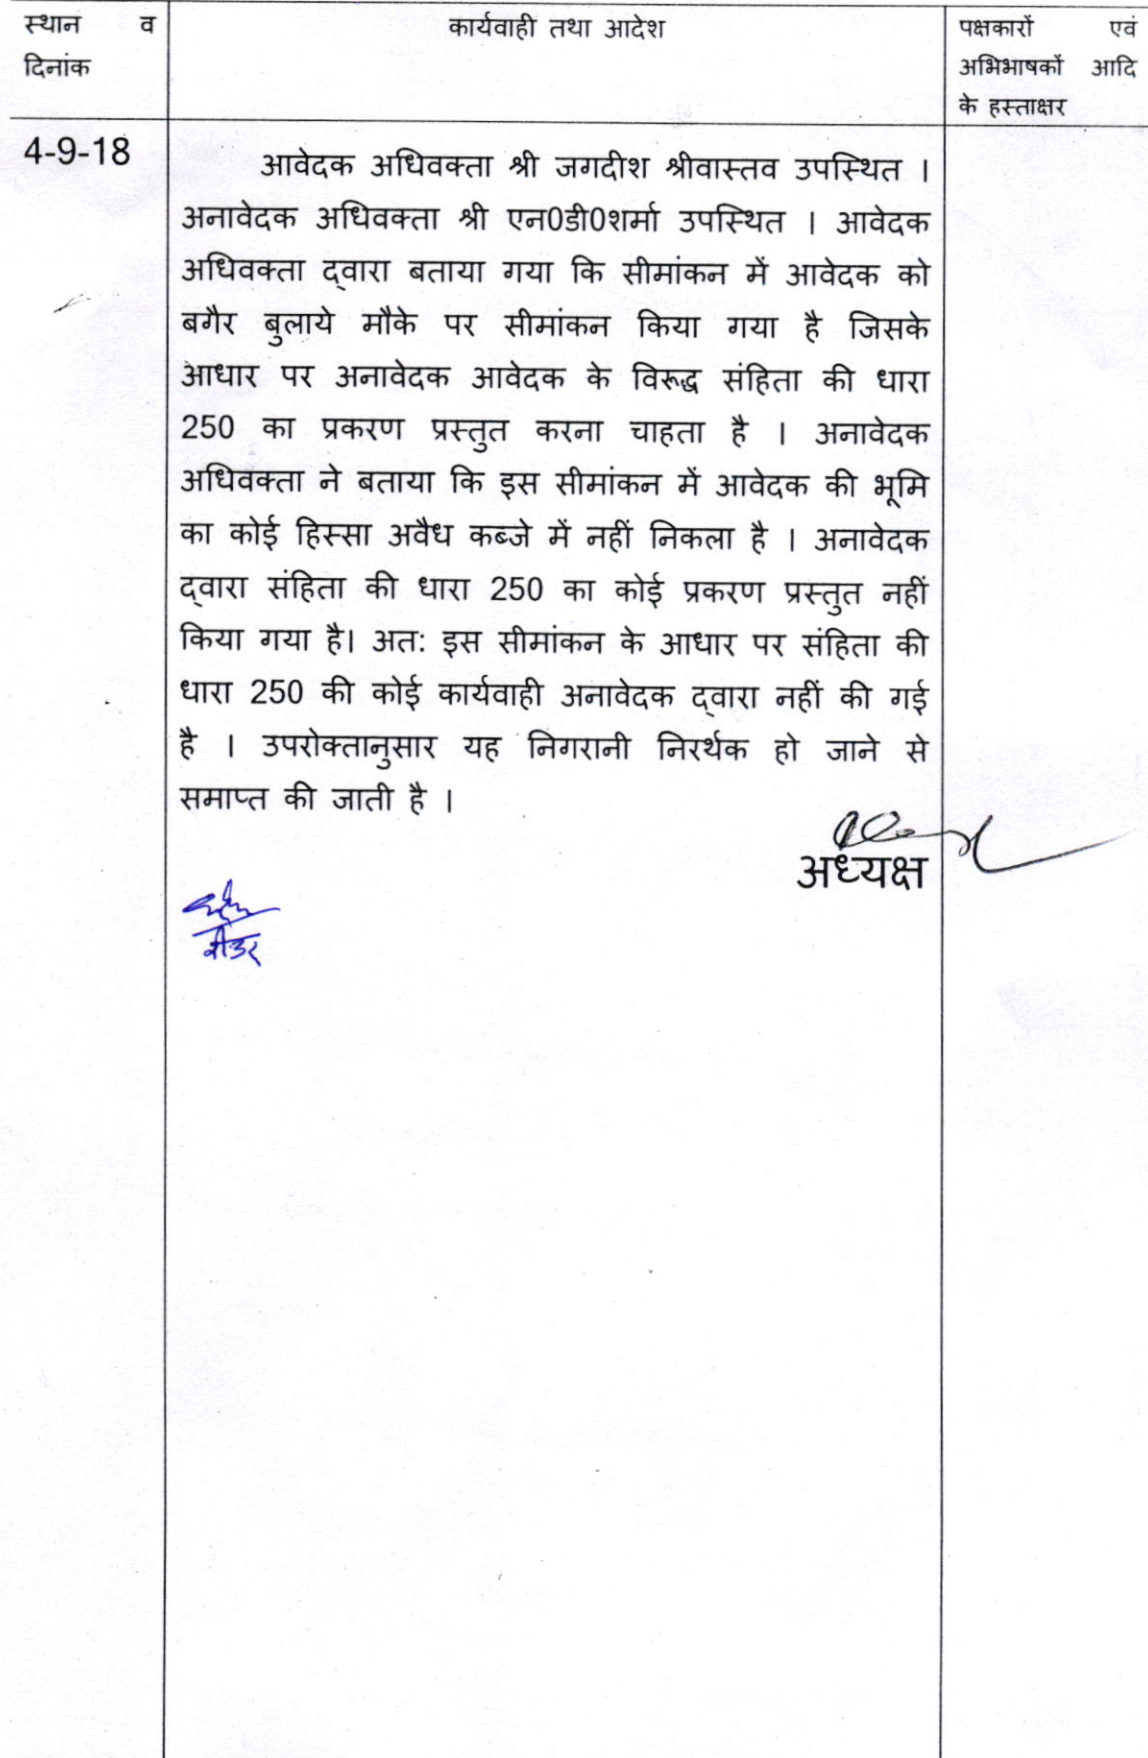 स्थान व
दिनांक
कार्यवाही तथा आदेश
पक्षकारों एवं
अभिभाषकों आदि
के हस्ताक्षर
4-9-18
आवेदक अधिवक्ता श्री जगदीश श्रीवास्तव उपस्थित ।
अनावेदक अधिवक्ता श्री एन0डी0शर्मा उपस्थित । आवेदक
अधिवक्ता द्वारा बताया गया कि सीमांकन में आवेदक को
बगैर बुलाये मौके पर सीमांकन किया गया है जिसके
आधार पर अनावेदक आवेदक के विरूद्ध संहिता की धारा
250 का प्रकरण प्रस्तुत करना चाहता है । अनावेदक
अधिवक्ता ने बताया कि इस सीमांकन में आवेदक की भूमि
का कोई हिस्सा अवैध कब्जे में नहीं निकला है । अनावेदक
द्वारा संहिता की धारा 250 का कोई प्रकरण प्रस्तुत नहीं
किया गया है। अत: इस सीमांकन के आधार पर संहिता की
धारा 250 की कोई कार्यवाही अनावेदक द्वारा नहीं की गई
है । उपरोक्तानुसार यह निगरानी निरर्थक हो जाने से
समाप्त की जाती है ।
अध्यक्ष
रीडर